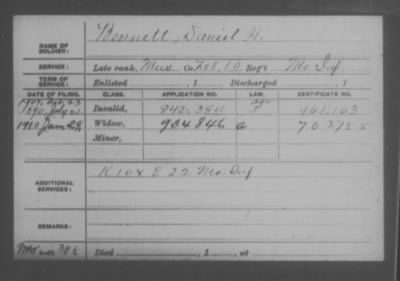 NAME OF SOLDIER: Bennett, Daniel H.
SERVICE: Late rank, Mus Co F & S, 10 Reg't Mo. Inf.
TERM OF SERVICE: Enlisted , 1 Discharged , 1
DATE OF FILING. CLASS. APPLICATION NO. LAW. CERTIFICATE NO.
1890, July Invalid, 842.384 965.163
1920 Jan 29 Widow, 934846 a
Minor,
ADDITIONAL SERVICES: K 10 & E 22 Mo. Inf
REMARKS:
Died , 1 , at